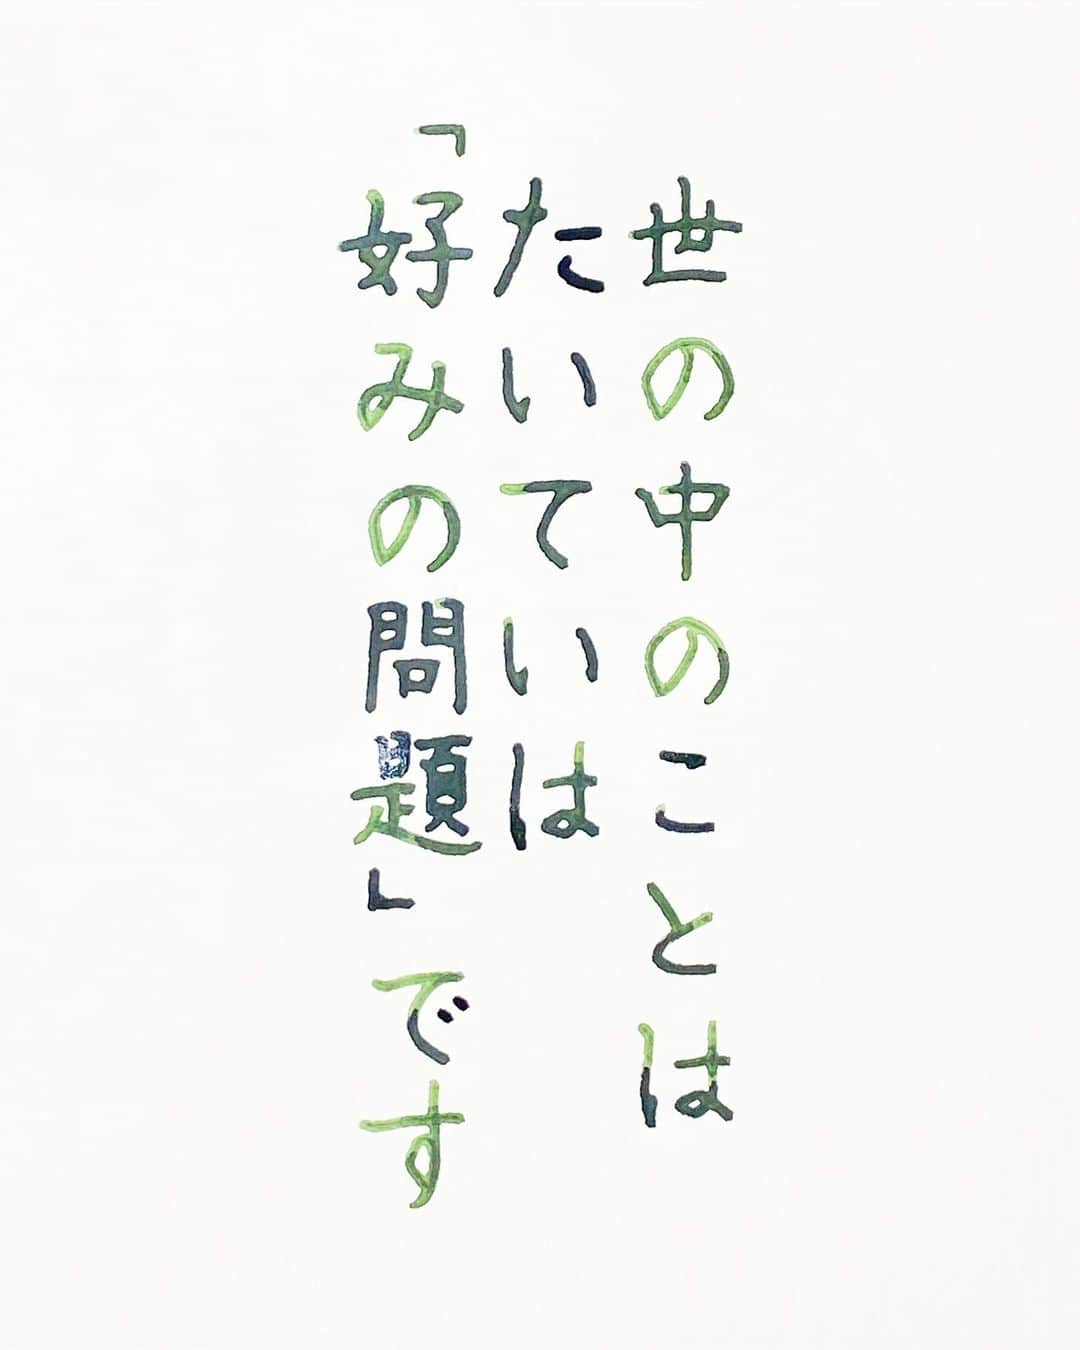 世の中のことは
たいていは
「好みの問題」です